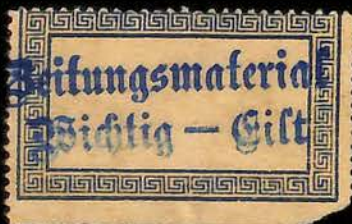 Zeitungsmaterial
Wichtig — Eilt